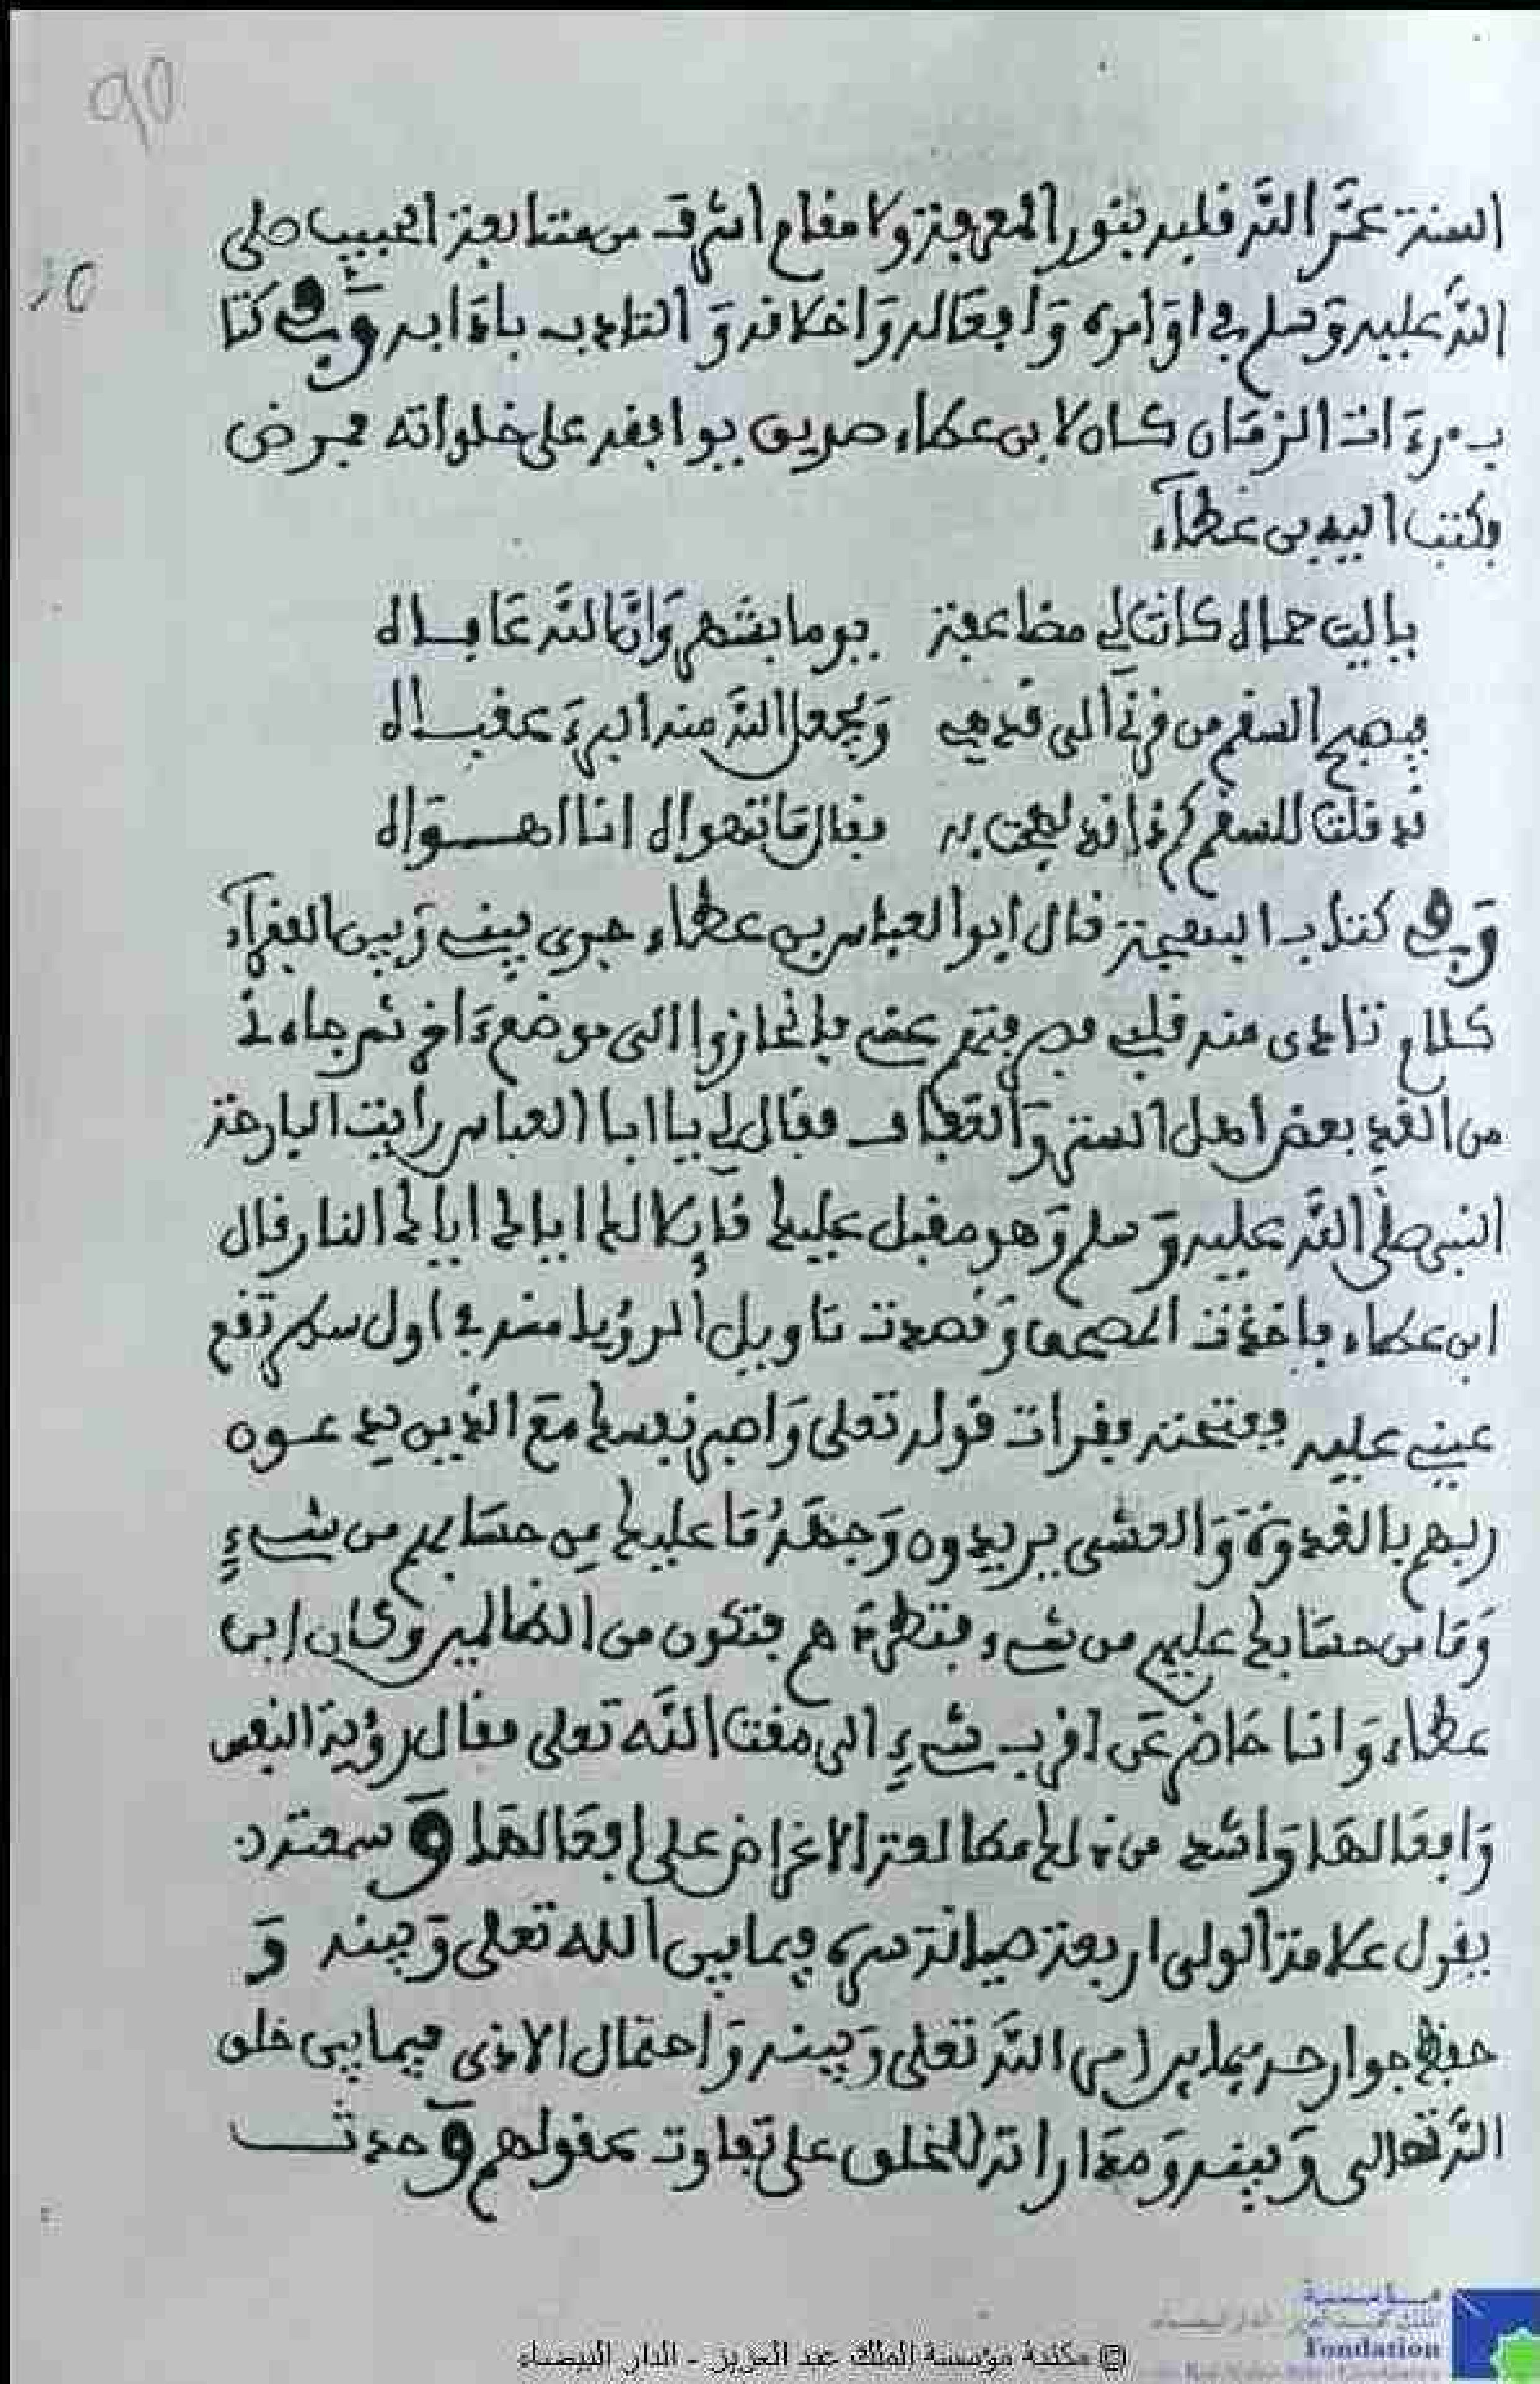 90
السنة عمَّر اللَّه قلبه بنور المعرفة ولا مقام اشرف من متابعة الحبيب صلى
اللَّه عليه وَسلم في اوَامره وَافعَاله وَاخلاقه وَ التادب بـاءَدابه وَفي كتا
ب مرءَات الزمَان كـان لابن عطاء صديق يوافقه على خلواته فمرض
فكتب اليه بن عطآء
ياليت حماك كانت لي مضاعفة يوما بشهر وَانَّ اللَّه عَافـاك
فيصبح السقم من فرقى الى قدمي وَيجعل اللَّه منه البرءَ عقبـاك
قد قلت للسقم كم ذا قد لهجت به فقال مَا تهواك انا اهـوَاك
وَفي كتاب البهجة قال ابو العباس بن عطاء جرى بيني وَبين الفقرآء
كلام تاذى منه قلبي فصرفتهم عني فانحازوا الى موضع ءَاخر ثم جاءني
من الغد بعض اهل الستر وَالعَفاف فقال لي يا ابا العباس رايت البارحة
النبي صلى اللَّه عليه وَ سلم وَهو مقبل عليك قايلا لك اياك اياك النار قال
ابن عطاء فاخذت المصحف وَقصدت تاويل الرؤيا منه في اول سطر تقع
عيني عليه ففتحته فقرات قوله تعلى وَاصبر نفسك مَعَ الذين يدعـون
ربهم بالغدوٰة وَالعشي يريدون وَجهَهُ مَا عليك مِن حسَابهم من شيءٍ
وَمَا من حسَابك عليهم من شيء فتطردَهم فتكون من الظالمين وَكان ابن
عطاء وَ انا حَاضر عَن اقرب شيءٍ الى مقت اللَّه تعلى فقال رؤية النفس
وَافعَالهَا وَاشد من ذلك مطالعة الاغراض على افعَالهَا وَ سمعته
يقول علامة الولي اربعة صيانة سره فيما بين الله تعلى وَبينه وَ
حفظ جوارحه فيما بين امر اللَّه تعلى وَبينه وَ احتمال الاذى فيما بين خلق
اللَّه تعالى وَبينه وَمدَاراته للخلق على تفاوت عقولهم وَ حدثـ
© مكتبة مؤسسة الملك عبد العزيز - الدار البيضاء
مؤسسة
Fondation